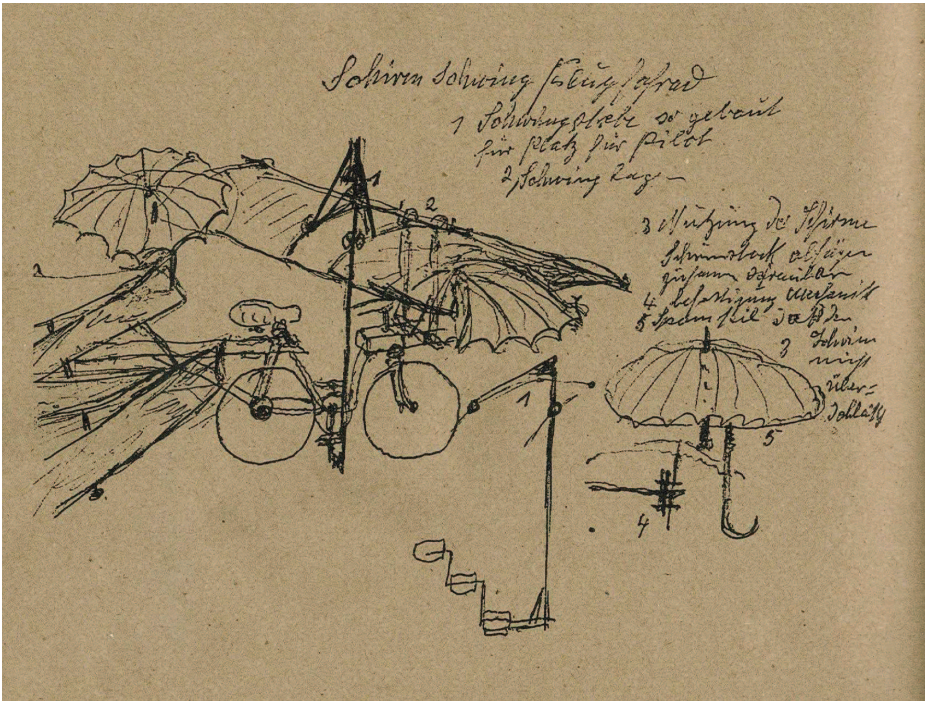 Schirm Schwing Flugfahrrad
1 Schwingstäbe so gebaut
für Platz für Pilot
2, Schwing
3 Nutzung der Schirme
Schirmstock absägen
4 befestigung Mechanik
5 Spannseil
3 Schirm
nicht
über=
schlägt
1
2
1
5
4